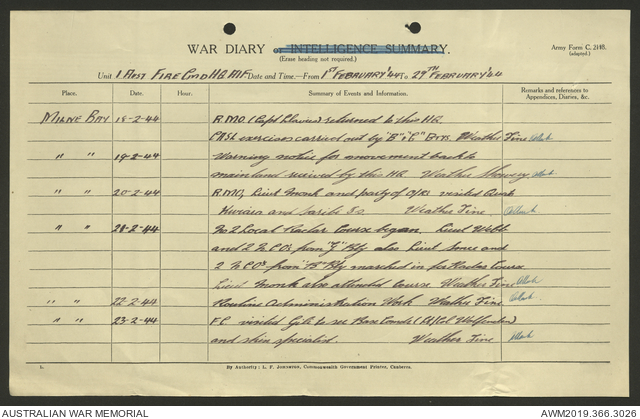 WAR DIARY or INTELLIGENCE SUMMARY.
(Erase heading not required.)
Army Form C. 2118.
(adapted.)
Unit 1 Aust FIRE Cmd HQ AIF Date and Time.—From 1ST FEBRUARY '44 To 29TH FEBRUARY '44
Place. Date. Hour. Summary of Events and Information. Remarks and references to Appendices, Diaries, &c.
MILNE BAY 18-2-44 R.M.O. (Capt ) returned to this HQ.
exercises carried out by "B" & "C" Btys. Weather Fine
" " 19-2-44 Warning notice for movement back to
mainland received by this HQ Weather Showery
" " 20-2-44 R.M.O., Lieut Monk and party of O/Rs visited
and Weather Fine
" " 21-2-44 No 2 Local Radar Course began. Lieut Webb
and 2 N.C.Os from "J" Bty also Lieut and
2 N.C.Os from "B" Bty marched in for Radar Course
Lieut Monk also attended Course Weather Fine
" " 22-2-44 Routine Administration Work Weather Fine
" " 23-2-44 F.C. visited Gili to see Base Comdr
and skin specialist. Weather Fine
L. By Authority: L. F. JOHNSTON, Commonwealth Government Printer, Canberra.
AUSTRALIAN WAR MEMORIAL AWM2019.366.3026